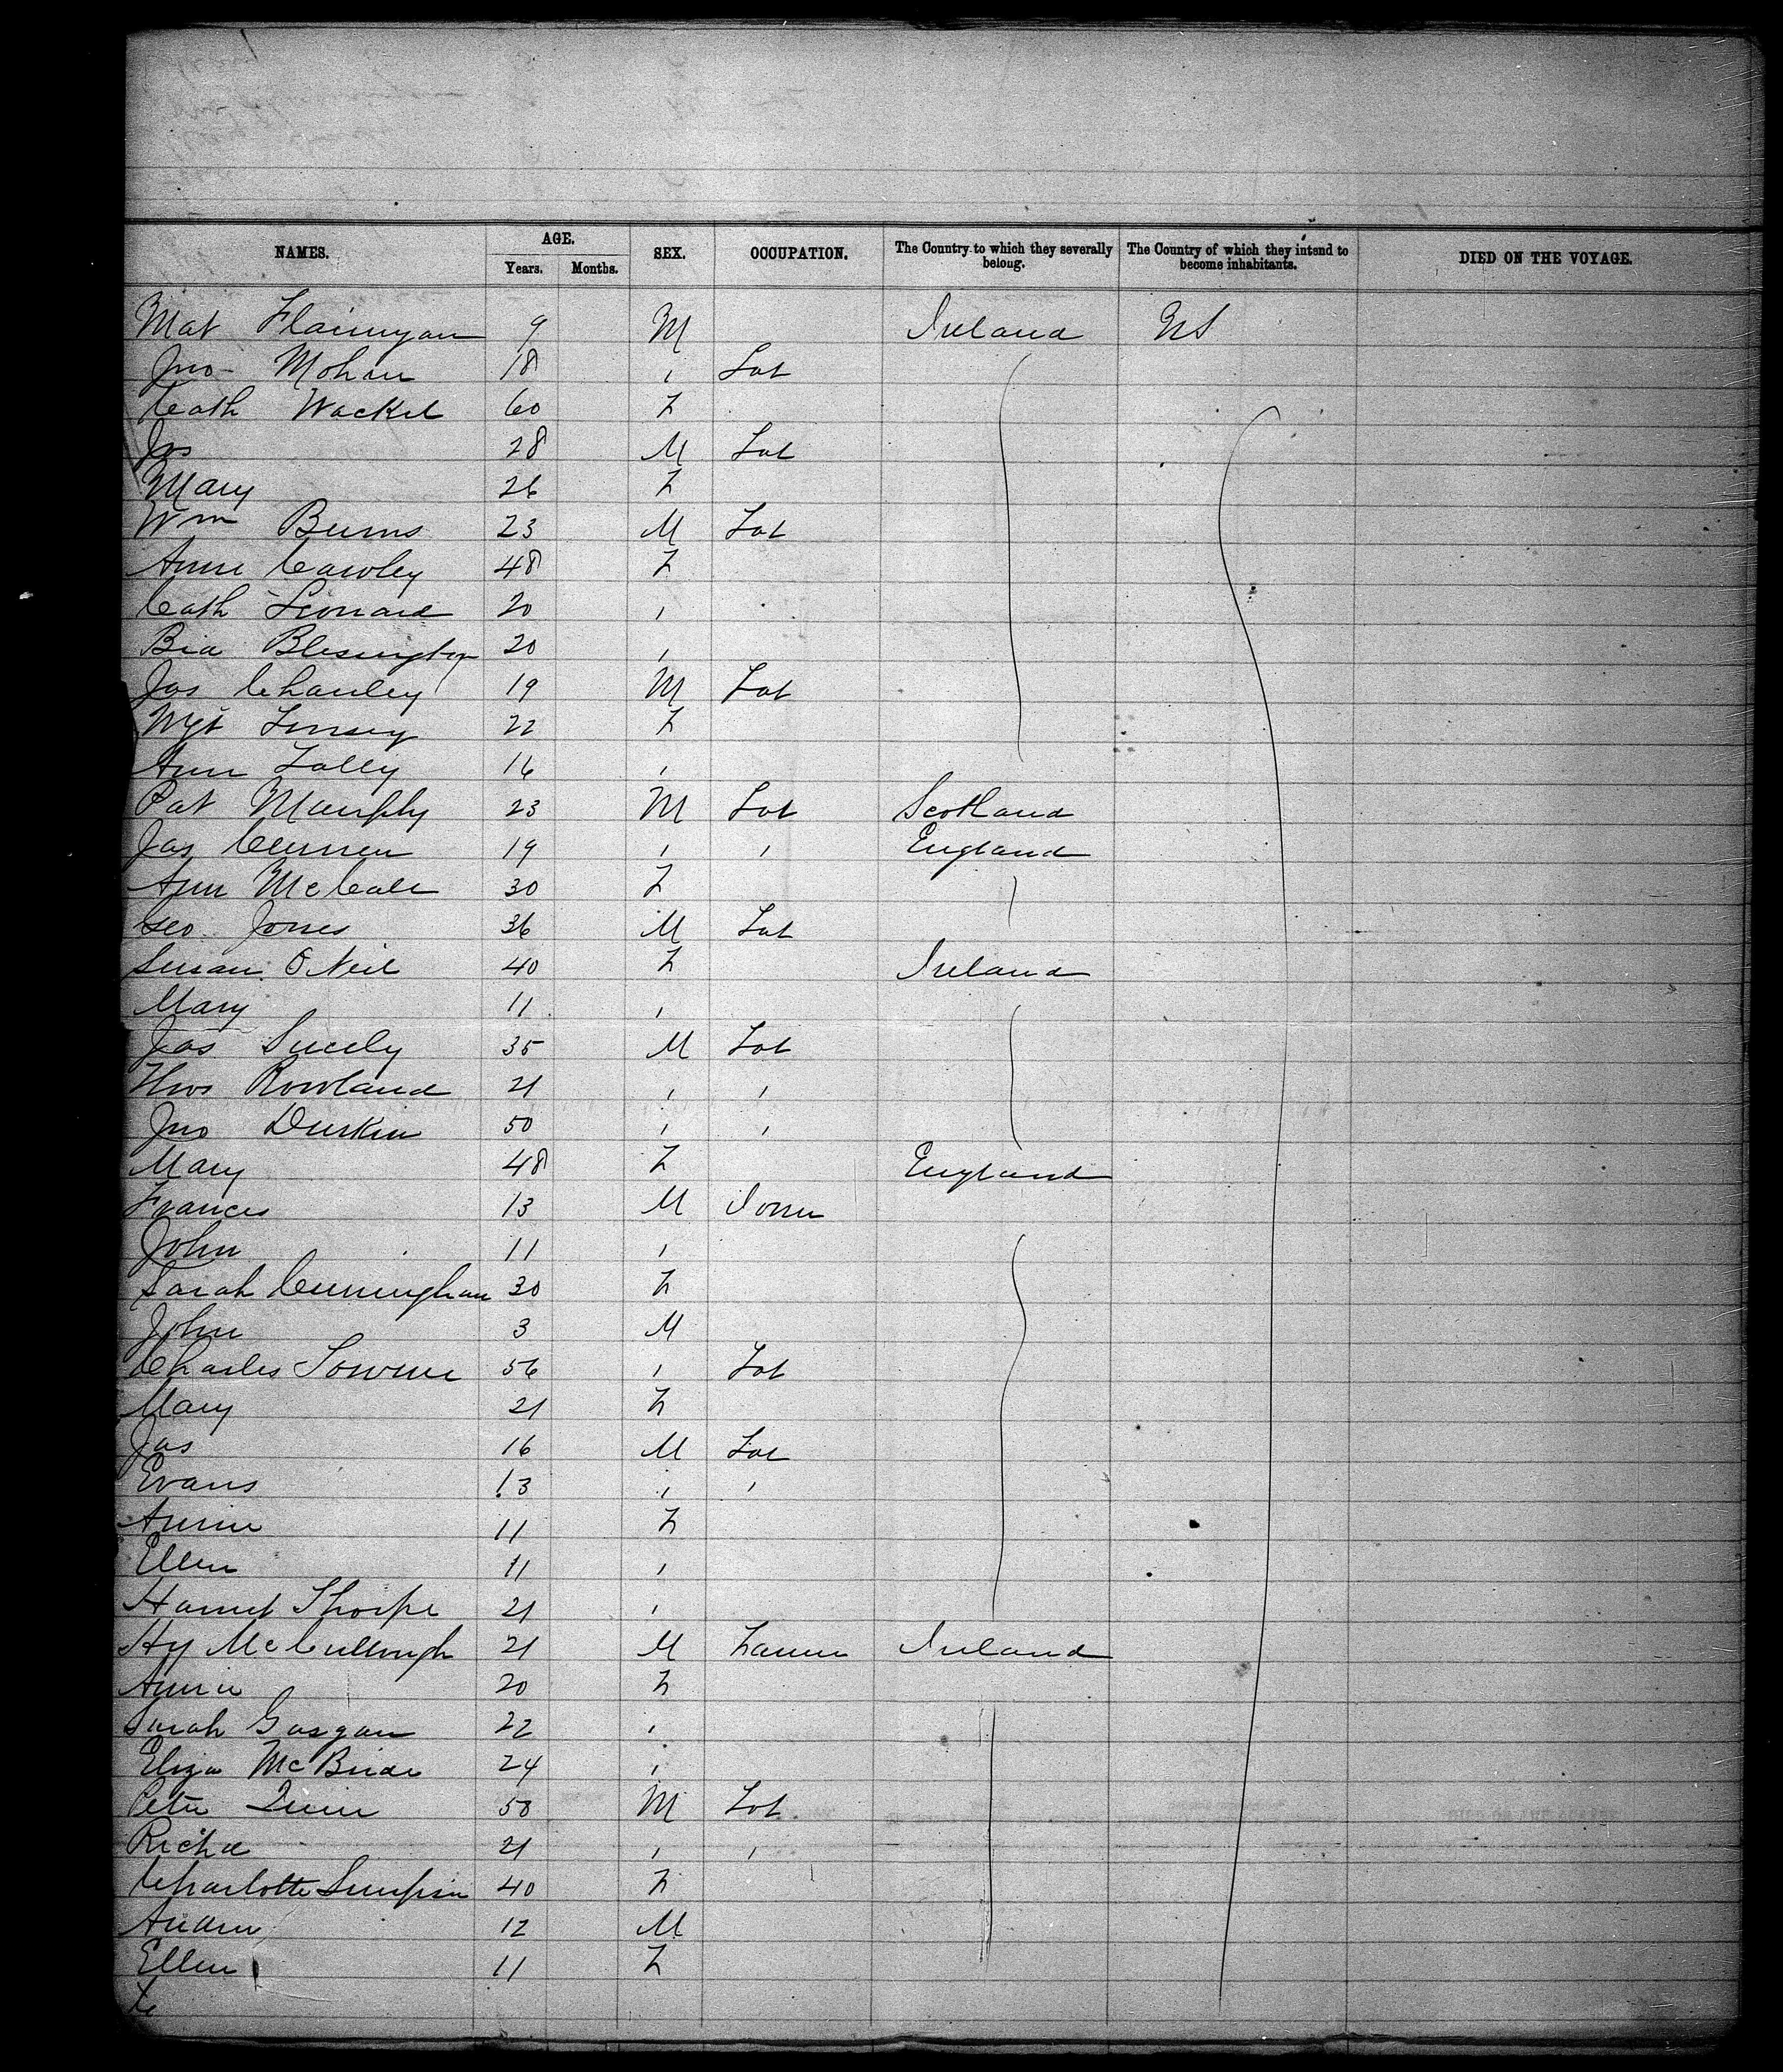 NAMES. AGE. SEX. OCCUPATION. The Country to which they severally belong. The Country of which they intend to become inhabitants. DIED ON THE VOYAGE.
Years. Months.
Mat Flannigan 9 M Ireland US
Jno Mohan 18 , Lab
Cath 60 F
Jas 28 M Lab
Mary 26 F
Wm Burns 23 M Lab
Anne Cawley 48 F
Cath Leonard 20 ,
Bia Blesington 20 ,
Jas Charley 19 M Lab
Mgt 22 F
Ann Lally 16 ,
Pat Murphy 23 M Lab Scotland
Jas Curren 19 , , England
Ann McCale 30 F
Geo. Jones 36 M Lab
Susan O'Neil 40 F Ireland
Mary 11 ,
Jas 35 M Lab
Thos Rowland 21 , ,
Jno Durkin 50 , ,
Mary 48 F England
Frances 13 M
John 11 ,
Sarah Cunningham 30 F
John 3 M
Charles 56 , Lab
Mary 21 F
Jas 16 M Lab
Evans 13 , ,
Annie 11 F
Ellen 11 ,
Harriet Thorpe 21 ,
Hy McCullough 21 M Farmer Ireland
Annie 20 F
Sarah Gargan 22 ,
Eliza McBride 24 ,
Peter Quinn 58 M Lab
Richd 21 , ,
Charlotte Simpson 40 F
Andrew 12 M
Ellen 11 F